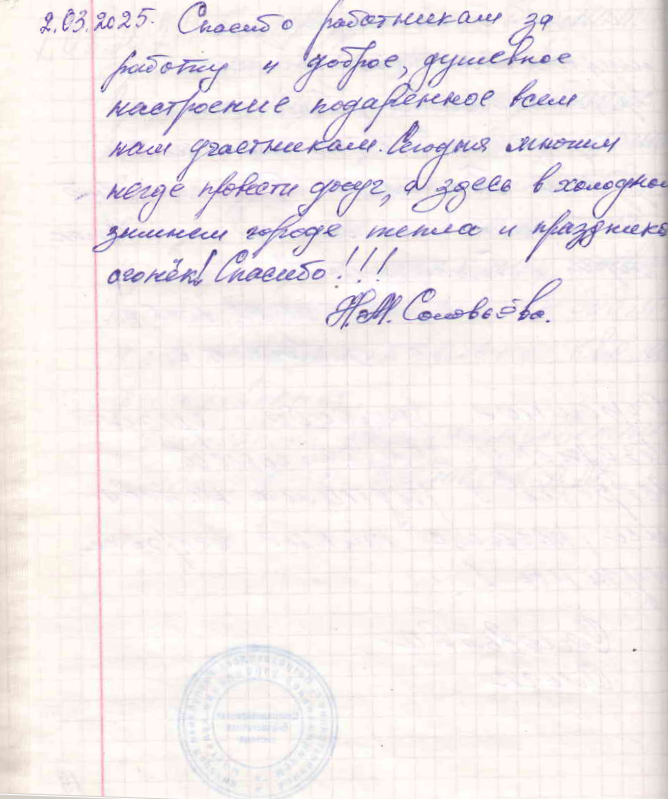 2.03.2025. Спасибо работникам за
работу и доброе, душевное
настроение подаренное всем
нам участникам. Сегодня многим
негде провести досуг, а здесь в холодном
зимнем городе тепла и праздника
огонёк! Спасибо!!!
Н.М. Соловьёва.